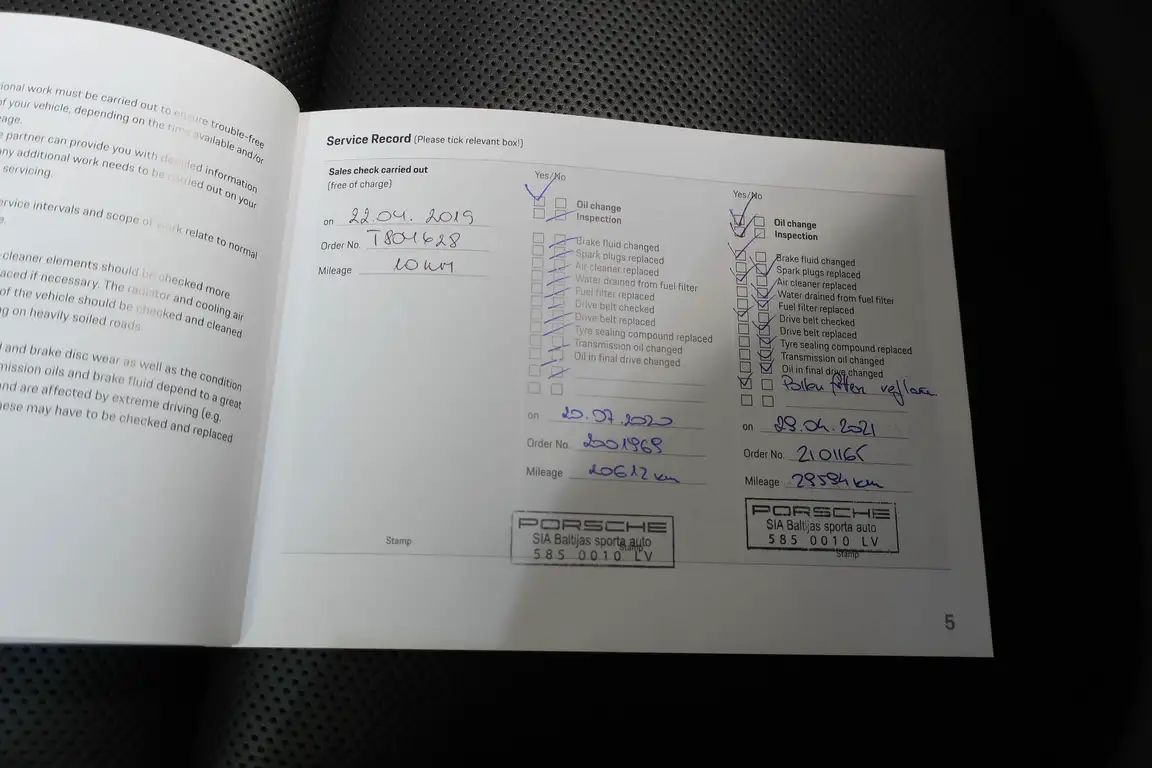 ional work must be carried out to ensure trouble-free
of your vehicle, depending on the time available and/or
eage.
e partner can provide you with detailed information
any additional work needs to be carried out on your
servicing.
ervice intervals and scope of work relate to normal
e.
cleaner elements should be checked more
aced if necessary. The radiator and cooling air
of the vehicle should be checked and cleaned
ng on heavily soiled roads.
l and brake disc wear as well as the condition
mission oils and brake fluid depend to a great
and are affected by extreme driving (e.g.
hese may have to be checked and replaced
Service Record (Please tick relevant box!)
Sales check carried out
(free of charge)
on 22.04. 2019
Order No. T804628
Mileage 10 km
Stamp
Yes/No
Oil change
Inspection
Brake fluid changed
Spark plugs replaced
Air cleaner replaced
Water drained from fuel filter
Fuel filter replaced
Drive belt checked
Drive belt replaced
Tyre sealing compound replaced
Transmission oil changed
Oil in final drive changed
on 20.07.2020
Order No. 2001969
Mileage 20612 km
PORSCHE
SIA Baltijas sporta auto
585 0010 LV
Stamp
Yes/No
Oil change
Inspection
Brake fluid changed
Spark plugs replaced
Air cleaner replaced
Water drained from fuel filter
Fuel filter replaced
Drive belt checked
Drive belt replaced
Tyre sealing compound replaced
Transmission oil changed
Oil in final drive changed
Pollen filter
on 29.04.2021
Order No. 2101165
Mileage 29594 km
PORSCHE
SIA Baltijas sporta auto
585 0010 LV
Stamp
5